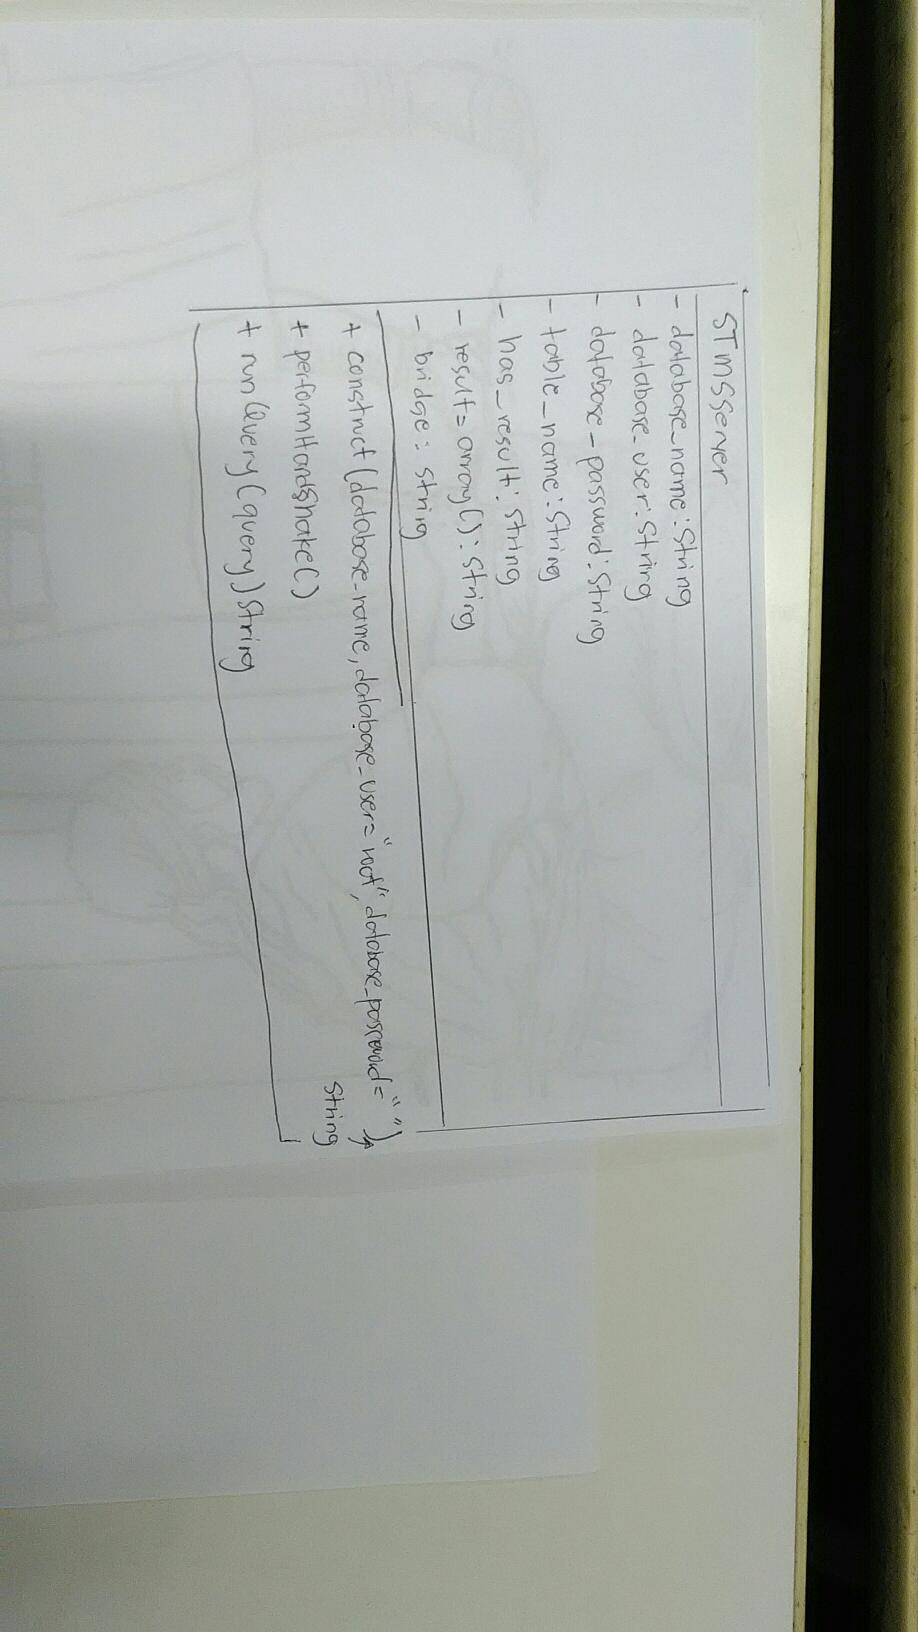 STMSServer
- database_name:String
- database_user:String
- database_password:String
- table_name:String
- has_result:String
- result=array():String
- bridge:String
+ construct(database_name,database_user="root",database_password="")
String
+ performHandShake()
+ runQuery(query)String